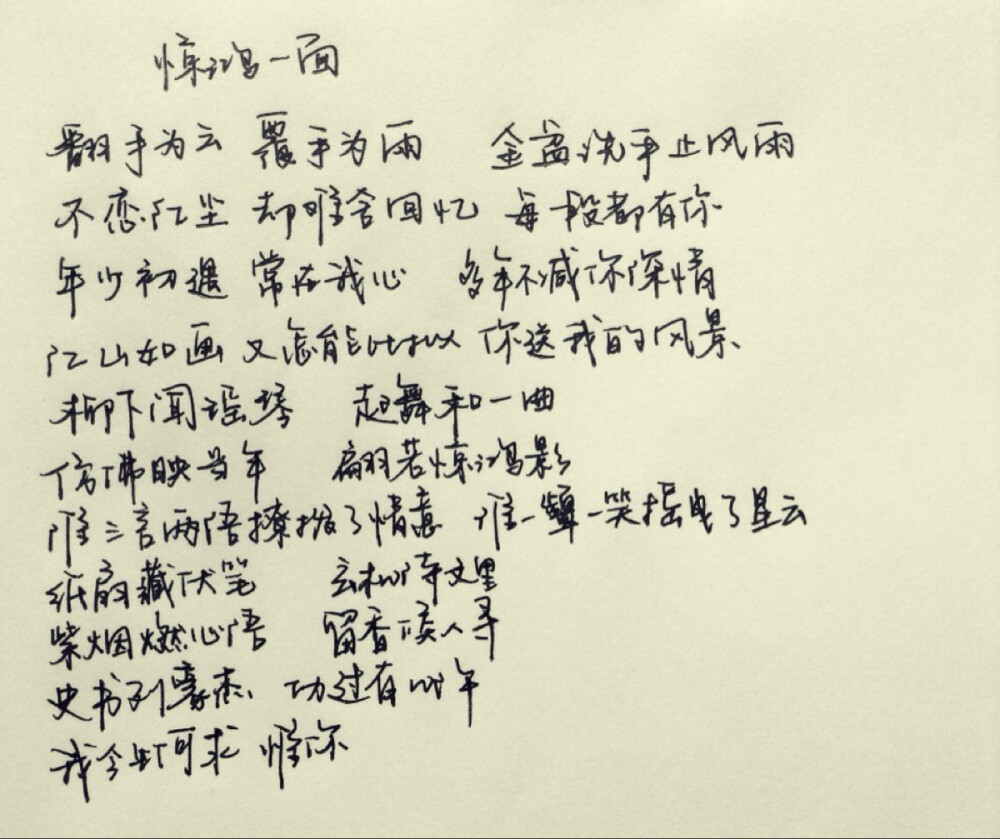 惊鸿一面
翻手为云 覆手为雨 金盆洗手止风雨
不恋红尘 却难舍回忆 每一段都有你
年少初遇 常在我心 多年不减你深情
江山如画 又怎能比拟 你送我的风景
柳下闻瑶琴 起舞和一曲
仿佛映当年 翩若惊鸿影
谁三言两语撩拨了情意 谁一颦一笑摇曳了星云
纸扇藏伏笔 玄机诗文里
紫烟燃心语 留香候人寻
史书列豪杰 功过有几许
我今生何求 惟你